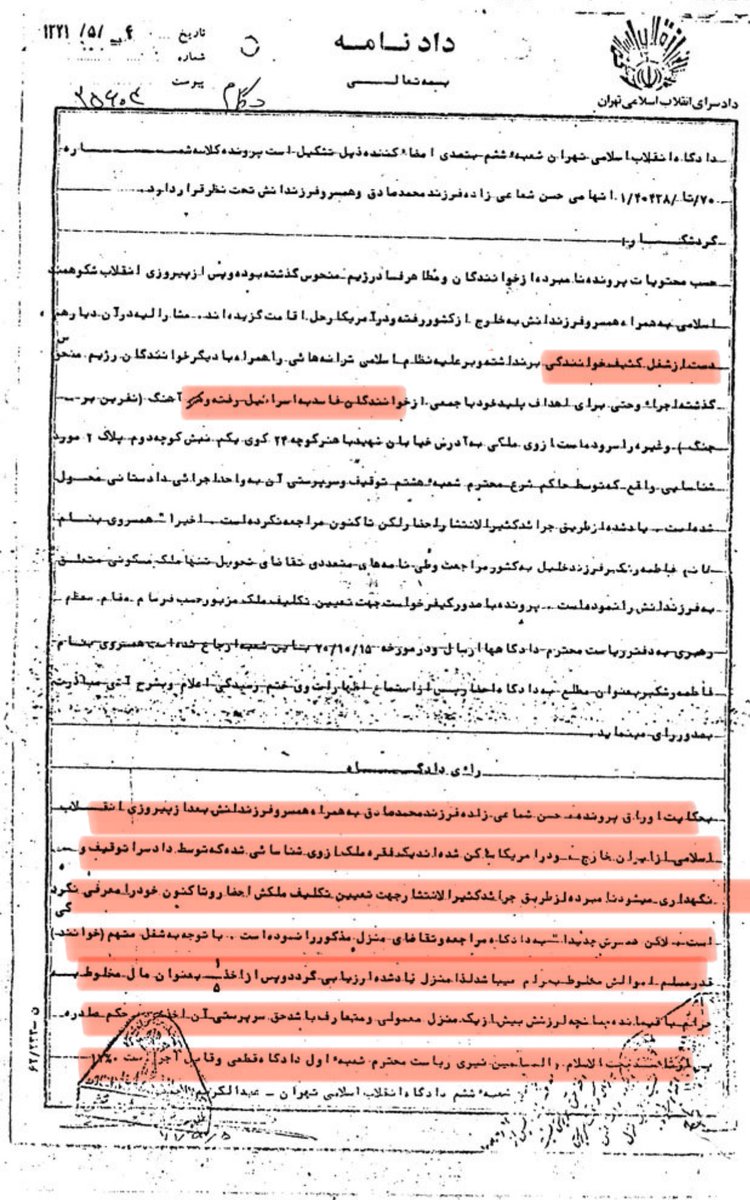 دادنامه
بسمه تعالی
تاریخ
شماره
پیوست
دادسرای انقلاب اسلامی تهران
دادگاه انقلاب اسلامی تهران شعبه ششم بتصدی امضاء کننده ذیل تشکیل است پرونده کلاسه شماره
اتهامی حسن شماعی زاده فرزند محمدصادق و همسر و فرزندانش تحت نظر قرار دارد.
گردشکار
حسب محتویات پرونده نامبرده از خوانندگان و مظاهر فساد رژیم منحوس گذشته بوده و پس از پیروزی انقلاب شکوهمند
اسلامی به همراه همسر و فرزندانش به خارج از کشور رفته و در آمریکا رحل اقامت گزیده اند. مشارالیه در آن دیار هم
دست از شغل کثیف خوانندگی برنداشته و بر علیه نظام اسلامی ترانه هائی را همراه با دیگر خوانندگان رژیم منحوس
گذشته اجراء و حتی برای اهداف پلید خود با جمعی از خوانندگان فاسد به اسرائیل رفته و آهنگ (نفرین بر
جنگ) و غیره را سروده است از وی ملکی به آدرس خیابان شهید باهنر کوچه ۲۴ کوی یکم نبش کوچه دوم پلاک ۲ مورد
شناسایی واقع که توسط حاکم شرع محترم شعبه هشتم توقیف و سرپرستی آن به واحد اجرائی دادستانی محول
شده است. یاد شده از طریق جرائد کثیرالانتشار احضار لکن تاکنون مراجعه نکرده است. اخیرا" همسر وی بنام
خانم فاطمه فرزند خلیل به کشور مراجعت و طی نامه های متعددی تقاضای تحویل تنها ملک مسکونی متعلق
به فرزندانش را نموده است. پرونده با صدور کیفرخواست جهت تعیین تکلیف ملک مزبور حسب فرمان مقام معظم
رهبری به دفتر ریاست محترم دادگاهها ارسال و در مورخه ۷۰/۱۰/۱۵ به این شعبه ارجاع شده است همسر وی بنام
فاطمه بعنوان مطلع به دادگاه احضار پس از استماع اظهارات وی ختم رسیدگی اعلام و بشرح آتی مبادرت
بصدور رای مینماید.
رای دادگاه
بحکایت اوراق پرونده حسن شماعی زاده فرزند محمدصادق به همراه همسر و فرزندانش بعد از پیروزی انقلاب
اسلامی از ایران خارج و در امریکا ساکن شده اند یک فقره ملک از وی شناسائی شده که توسط دادسرا توقیف و
نگهداری میشود نامبرده از طریق جرائد کثیرالانتشار جهت تعیین تکلیف ملکش احضار و تاکنون خود را معرفی نکرده
است. لاکن همسرش جدیدا" به دادگاه مراجعه و تقاضای منزل مذکور را نموده است. با توجه به شغل متهم (خوانندگی)
قدر مسلم اموالش مخلوط بحرام میباشد لذا منزل یاد شده ارزیابی گردد پس از اخذ ۱/۵ بعنوان مال مخلوط به
حرام باقیمانده چنانچه ارزش بیش از یک منزل معمولی و متعارف باشد حق سرپرستی آن اخذ حکم صادره
حجت الاسلام والمسلمین نیری ریاست محترم شعبه اول دادگاه قطعی و قابل اجراست
شعبه ششم دادگاه انقلاب اسلامی تهران - عبدالکریم